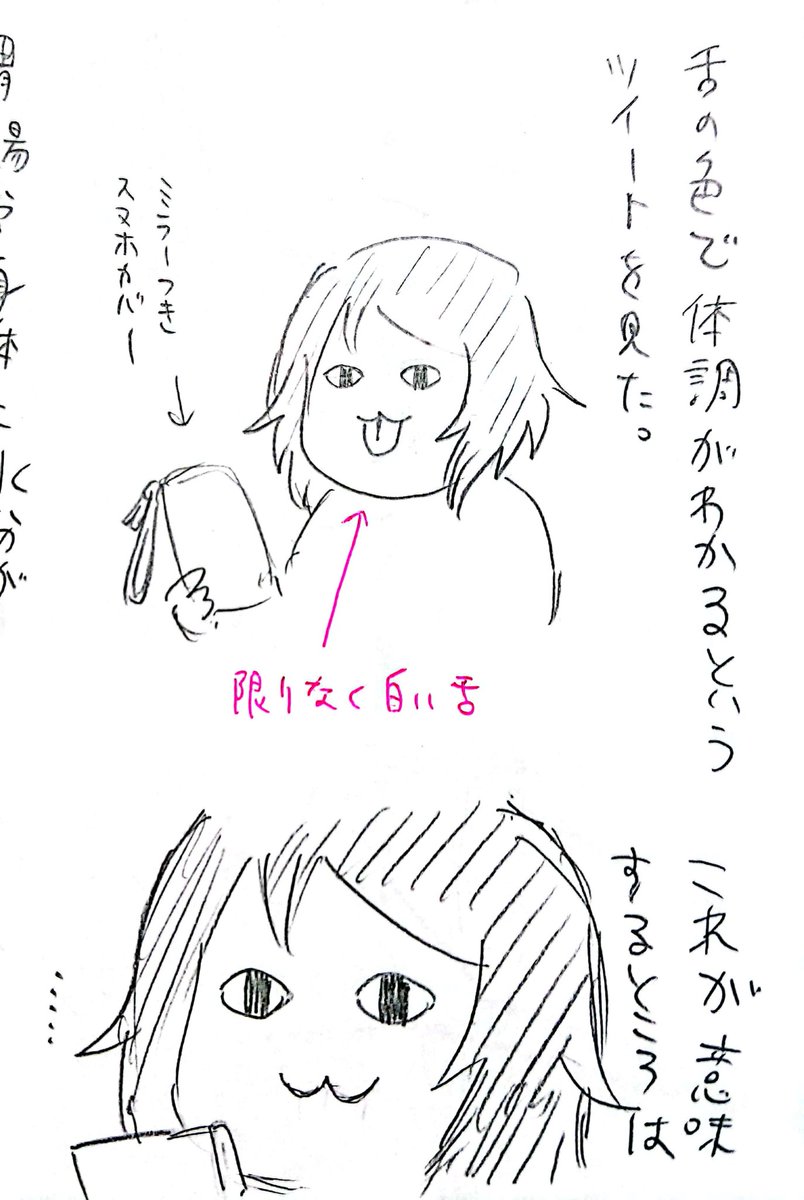 舌の色で体調がわかるという
ツイートを見た。
ミラーつき
スマホカバー
限りなく白い舌
これが意味
するところは
……